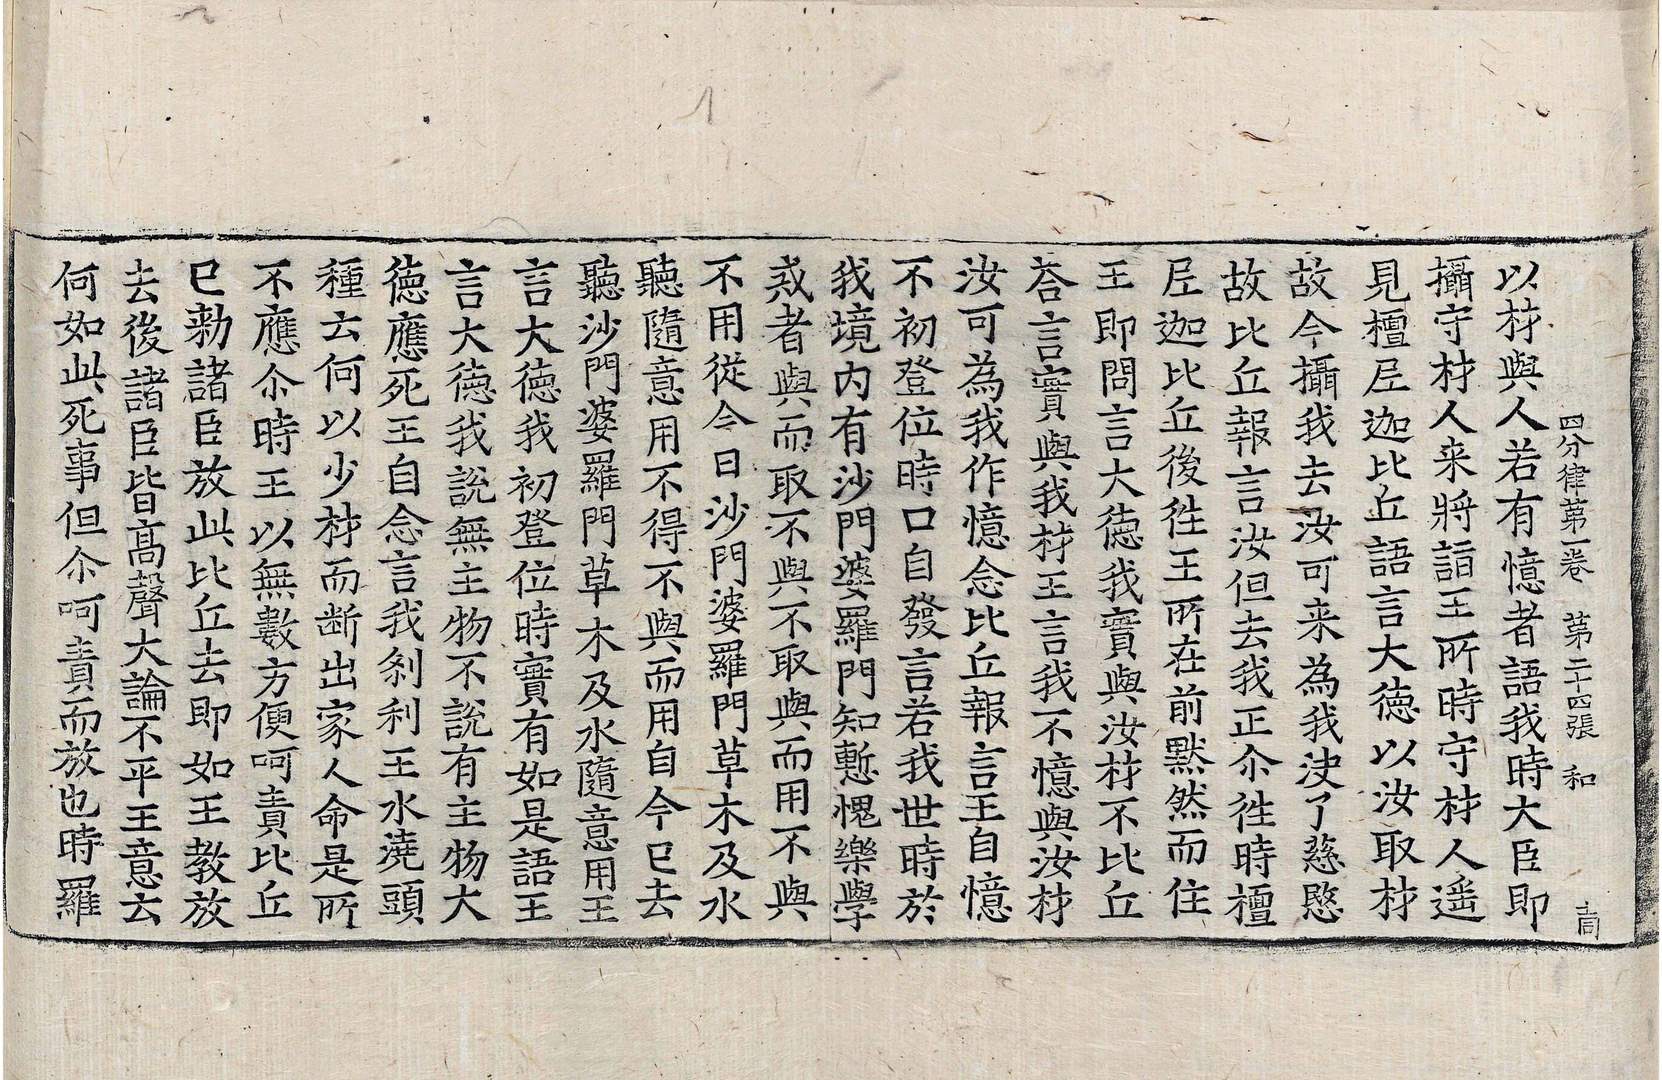 四分律苐一卷　苐二十四張　和
以材與人若有憶者語我時大臣即
攝守材人来將詣王所時守材人遥
見檀𡰱迦比丘語言大德以汝取材
故今攝我去汝可来為我决了慈愍
故比丘報言汝但去我正尒徃時檀
𡰱迦比丘後徃王所在前默然而住
王即問言大德我實與汝材不比丘
荅言實與我材王言我不憶與汝材
汝可為我作憶念比丘報言王自憶
不初登位時口自發言若我世時於
我境内有沙門婆羅門知慙愧樂學
戒者與而取不與不取與而用不與
不用從今日沙門婆羅門草木及水
聽隨意用不得不與而用自今已去
聽沙門婆羅門草木及水隨意用王
言大德我初登位時實有如是語王
言大德我說無主物不說有主物大
德應死王自念言我剎利王水澆頭
種云何以少材而断出家人命是所
不應尒時王以無數方便呵責比丘
已勑諸臣放此比丘去即如王教放
去後諸臣皆高聲大論不平王意云
何如此死事但尒呵責而放也時羅